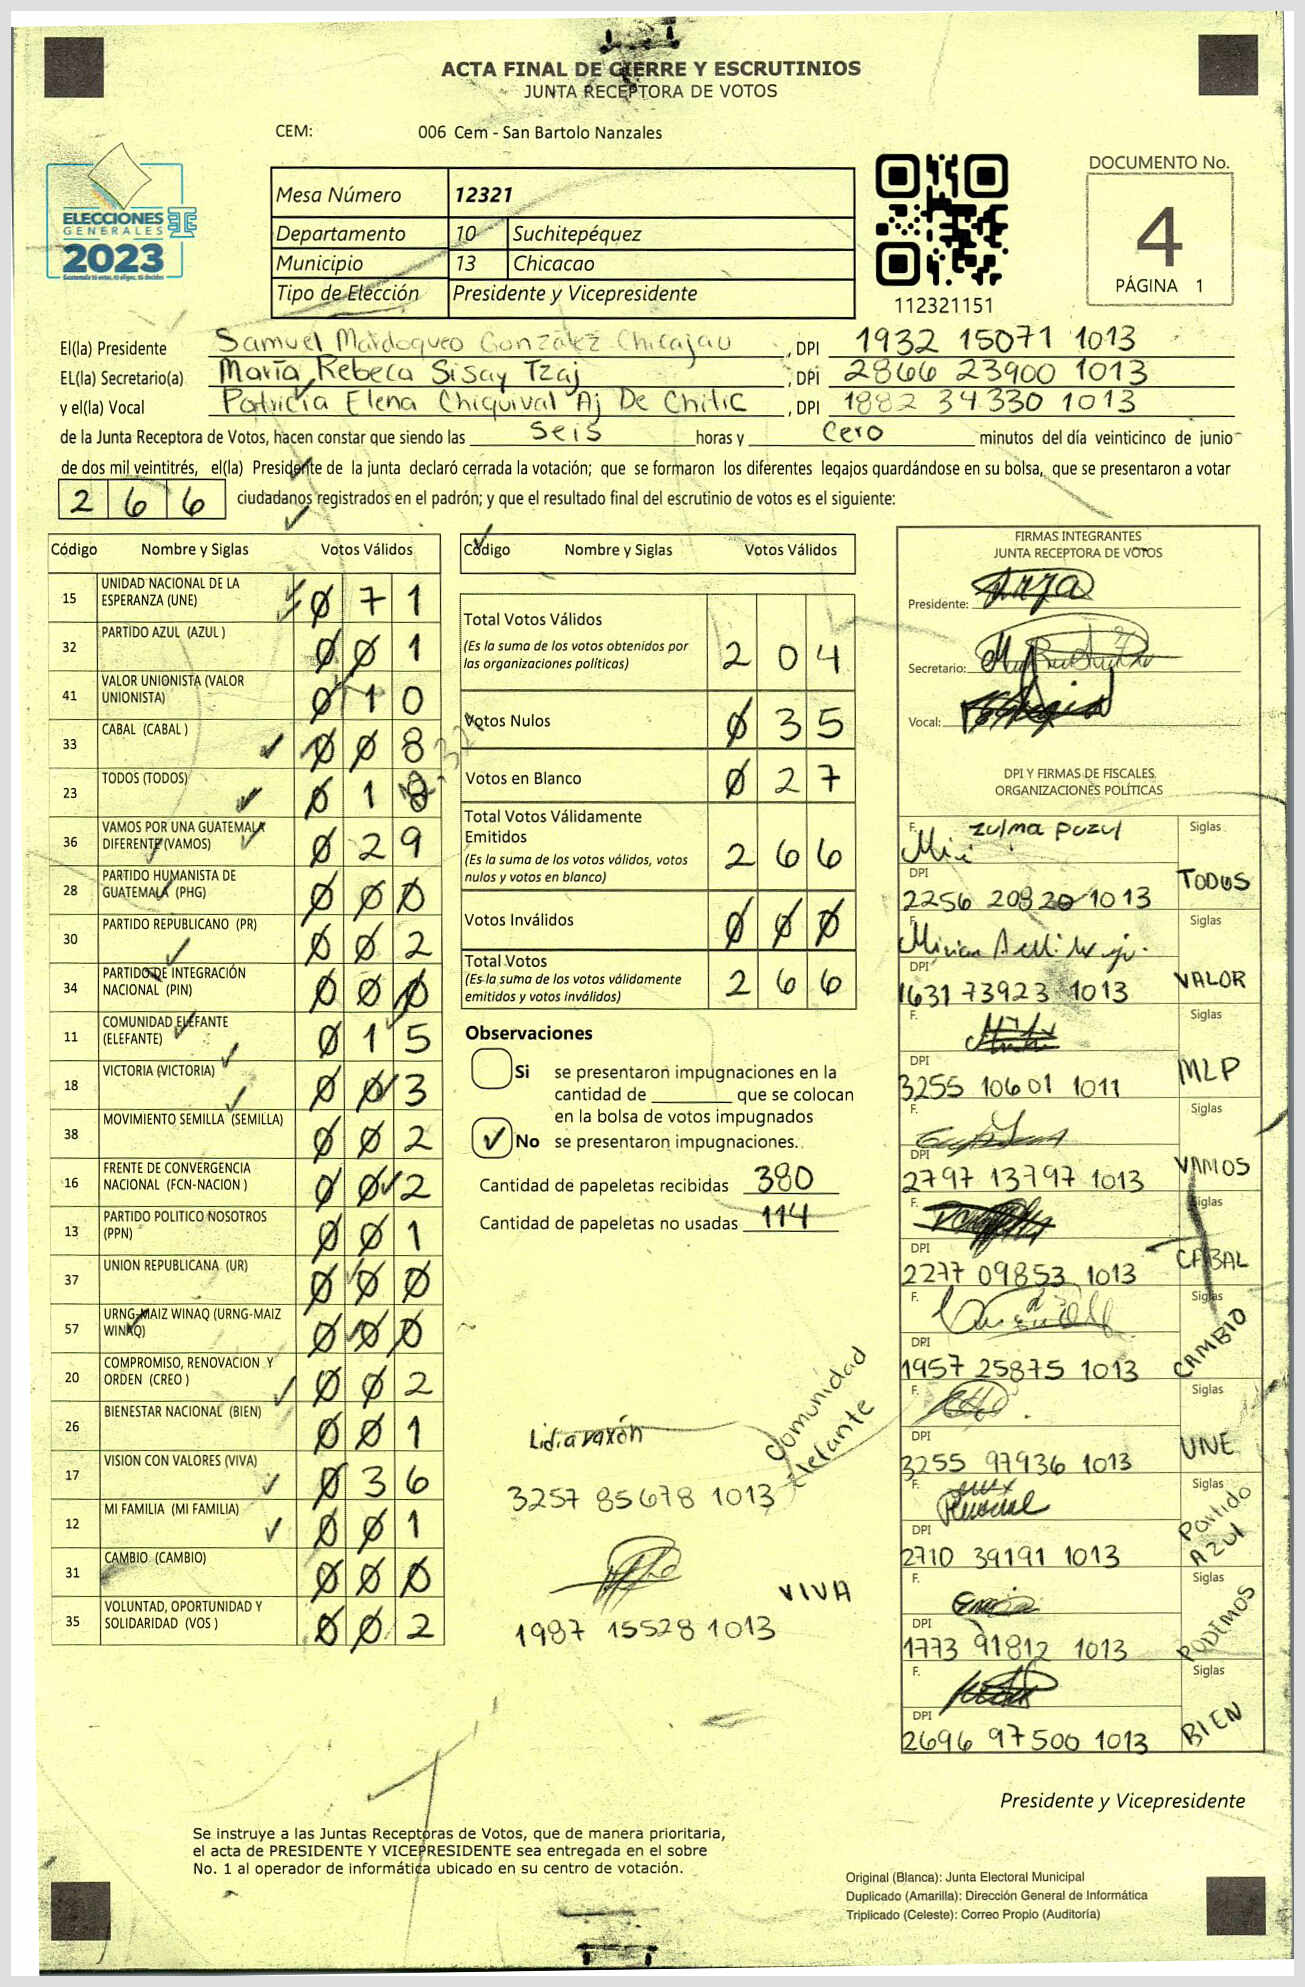 ACTA FINAL DE CIERRE Y ESCRUTINIOS
JUNTA RECEPTORA DE VOTOS
CEM: 006 Cem - San Bartolo Nanzales
ELECCIONES
GENERALES
2023
Mesa Número 12321
Departamento 10 Suchitepéquez
Municipio 13 Chicacao
Tipo de Elección Presidente y Vicepresidente
112321151
DOCUMENTO No.
4
PÁGINA 1
El(la) Presidente Samuel Mardoqueo González Chicajau , DPI 1932 15071 1013
EL(la) Secretario(a) María Rebeca Sisay Tzaj , DPI 2866 23900 1013
y el(la) Vocal Patricia Elena Chiquival Aj De Chitic , DPI 1882 34330 1013
de la Junta Receptora de Votos, hacen constar que siendo las seis horas y cero minutos del día veinticinco de junio
de dos mil veintitrés, el(la) Presidente de la junta declaró cerrada la votación; que se formaron los diferentes legajos guardándose en su bolsa, que se presentaron a votar
266 ciudadanos registrados en el padrón; y que el resultado final del escrutinio de votos es el siguiente:
Código Nombre y Siglas Votos Válidos
15 UNIDAD NACIONAL DE LA ESPERANZA (UNE) 0 7 1
32 PARTIDO AZUL (AZUL ) 0 0 1
41 VALOR UNIONISTA (VALOR UNIONISTA) 0 1 0
33 CABAL (CABAL ) 0 0 8
23 TODOS (TODOS) 0 1 8
36 VAMOS POR UNA GUATEMALA DIFERENTE (VAMOS) 0 2 9
28 PARTIDO HUMANISTA DE GUATEMALA (PHG) 0 0 0
30 PARTIDO REPUBLICANO (PR) 0 0 2
34 PARTIDO DE INTEGRACIÓN NACIONAL (PIN) 0 0 0
11 COMUNIDAD ELEFANTE (ELEFANTE) 0 1 5
18 VICTORIA (VICTORIA) 0 0 3
38 MOVIMIENTO SEMILLA (SEMILLA) 0 0 2
16 FRENTE DE CONVERGENCIA NACIONAL (FCN-NACION ) 0 0 2
13 PARTIDO POLITICO NOSOTROS (PPN) 0 0 1
37 UNION REPUBLICANA (UR) 0 0 0
57 URNG-MAIZ WINAQ (URNG-MAIZ WINAQ) 0 0 0
20 COMPROMISO, RENOVACION Y ORDEN (CREO ) 0 0 2
26 BIENESTAR NACIONAL (BIEN) 0 0 1
17 VISION CON VALORES (VIVA) 0 3 6
12 MI FAMILIA (MI FAMILIA) 0 0 1
31 CAMBIO (CAMBIO) 0 0 0
35 VOLUNTAD, OPORTUNIDAD Y SOLIDARIDAD (VOS ) 0 0 2
Código Nombre y Siglas Votos Válidos
Total Votos Válidos
(Es la suma de los votos obtenidos por
las organizaciones políticas) 2 0 4
Votos Nulos 0 3 5
Votos en Blanco 0 2 7
Total Votos Válidamente
Emitidos
(Es la suma de los votos válidos, votos
nulos y votos en blanco) 2 6 6
Votos Inválidos 0 0 0
Total Votos
(Es la suma de los votos válidamente
emitidos y votos inválidos) 2 6 6
Observaciones
Si se presentaron impugnaciones en la
cantidad de ________ que se colocan
en la bolsa de votos impugnados
✓ No se presentaron impugnaciones.
Cantidad de papeletas recibidas 380
Cantidad de papeletas no usadas 114
Lidia raxón
3257 85678 1013
Comunidad elefante
VIVA
1987 15528 1013
FIRMAS INTEGRANTES
JUNTA RECEPTORA DE VOTOS
Presidente:
Secretario:
Vocal:
DPI Y FIRMAS DE FISCALES
ORGANIZACIONES POLÍTICAS
F. zulma puzul Siglas
DPI
2256 20820 1013 TODOS
F. Siglas
DPI
1631 73923 1013 VALOR
F. Siglas
DPI
3255 10601 1011 MLP
F. Siglas
DPI
2797 13797 1013 VAMOS
F. Siglas
DPI
2277 09853 1013 CABAL
F. Siglas
DPI
1957 25875 1013 CAMBIO
F. Siglas
DPI
3255 97936 1013 UNE
F. Siglas
DPI
2710 39191 1013 Partido AZUL
F. Siglas
DPI
1773 91812 1013 PODEMOS
F. Siglas
DPI
2696 97500 1013 BIEN
Presidente y Vicepresidente
Se instruye a las Juntas Receptoras de Votos, que de manera prioritaria,
el acta de PRESIDENTE Y VICEPRESIDENTE sea entregada en el sobre
No. 1 al operador de informática ubicado en su centro de votación.
Original (Blanca): Junta Electoral Municipal
Duplicado (Amarilla): Dirección General de Informática
Triplicado (Celeste): Correo Propio (Auditoría)